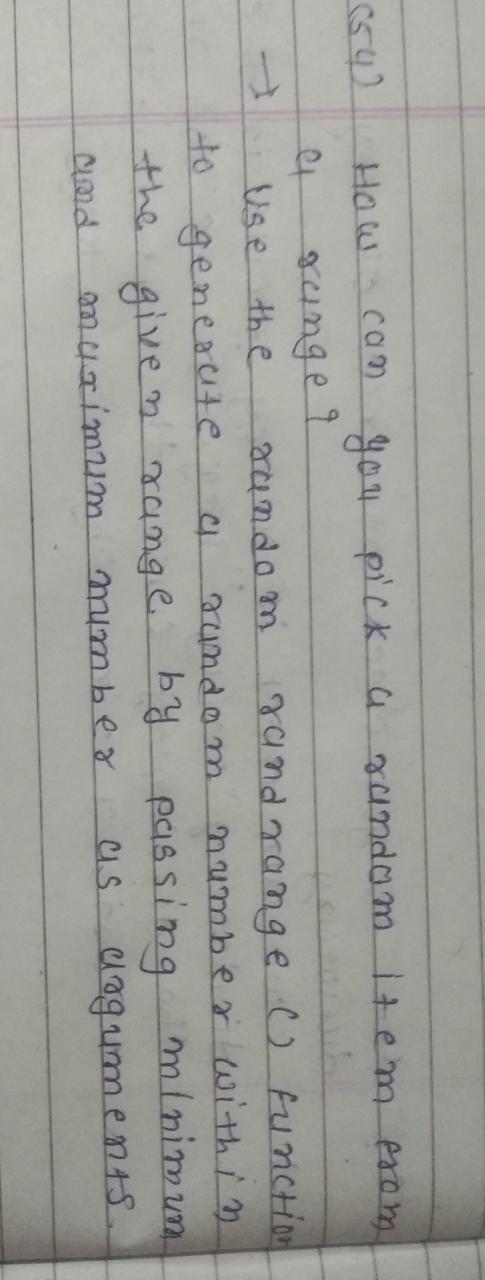 (54) How can you pick a random Item from
a range?
→ Use the random randrange () Function
to generate a random number within
the given range by passing minimum
and maximum number as arguments.